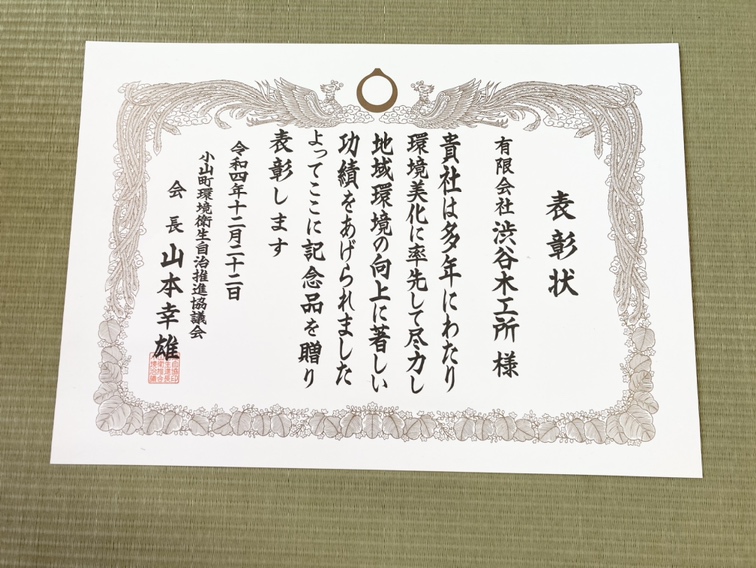 表彰状
有限会社 渋谷木工所 様
貴社は多年にわたり
環境美化に率先して尽力し
地域環境の向上に著しい
功績をあげられました
よってここに記念品を贈り
表彰します
令和四年十二月二十二日
小山町環境衛生自治推進協議会
会長 山本幸雄